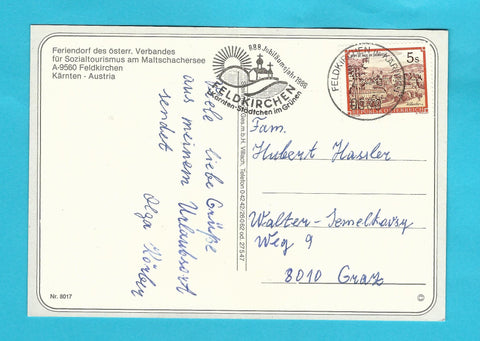 Feriendorf des österr. Verbandes
für Sozialtourismus am Maltschachersee
A-9560 Feldkirchen
Kärnten - Austria
888. Jubiläumsjahr 1988
FELDKIRCHEN
Kärnten-Städtchen im Grünen
FELDKIRCHEN
5s
REPUBLIK ÖSTERREICH
Viele liebe Grüße
aus meinem Urlaubsort
sendet
Olga Körbler
m.b.H. Villach, Telefon
Fam.
Hubert Hassler
Walter-Semetkovsy
Weg 9
8010 Graz
Nr. 8017
©